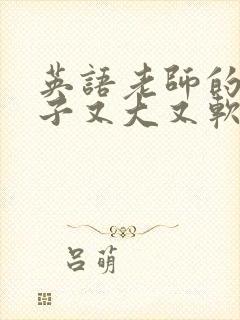 英語老師的
子又大又軟
呂萌